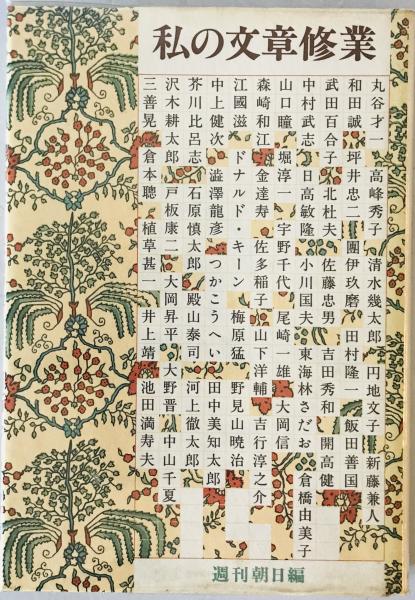 私の文章修業
丸谷才一 高峰秀子 清水幾太郎 円地文子 新藤兼人
和田誠 坪井忠二 團伊玖磨 田村隆一 飯田善国
武田百合子 北杜夫 佐藤忠男 吉田秀和 開高健
中村武志 日高敏隆 小川国夫 東海林さだお 倉橋由美子
山口瞳 堀淳一 宇野千代 尾崎一雄 大岡信
森崎和江 金達寿 佐多稲子 山下洋輔 吉行淳之介
江國滋 ドナルド・キーン 梅原猛 野見山暁治
中上健次 澁澤龍彦 つかこうへい 田中美知太郎
芥川比呂志 石原慎太郎 殿山泰司 河上徹太郎
沢木耕太郎 戸板康二 大岡昇平 大野晋 中山千夏
三善晃 倉本聰 植草甚一 井上靖 池田満寿夫
週刊朝日編